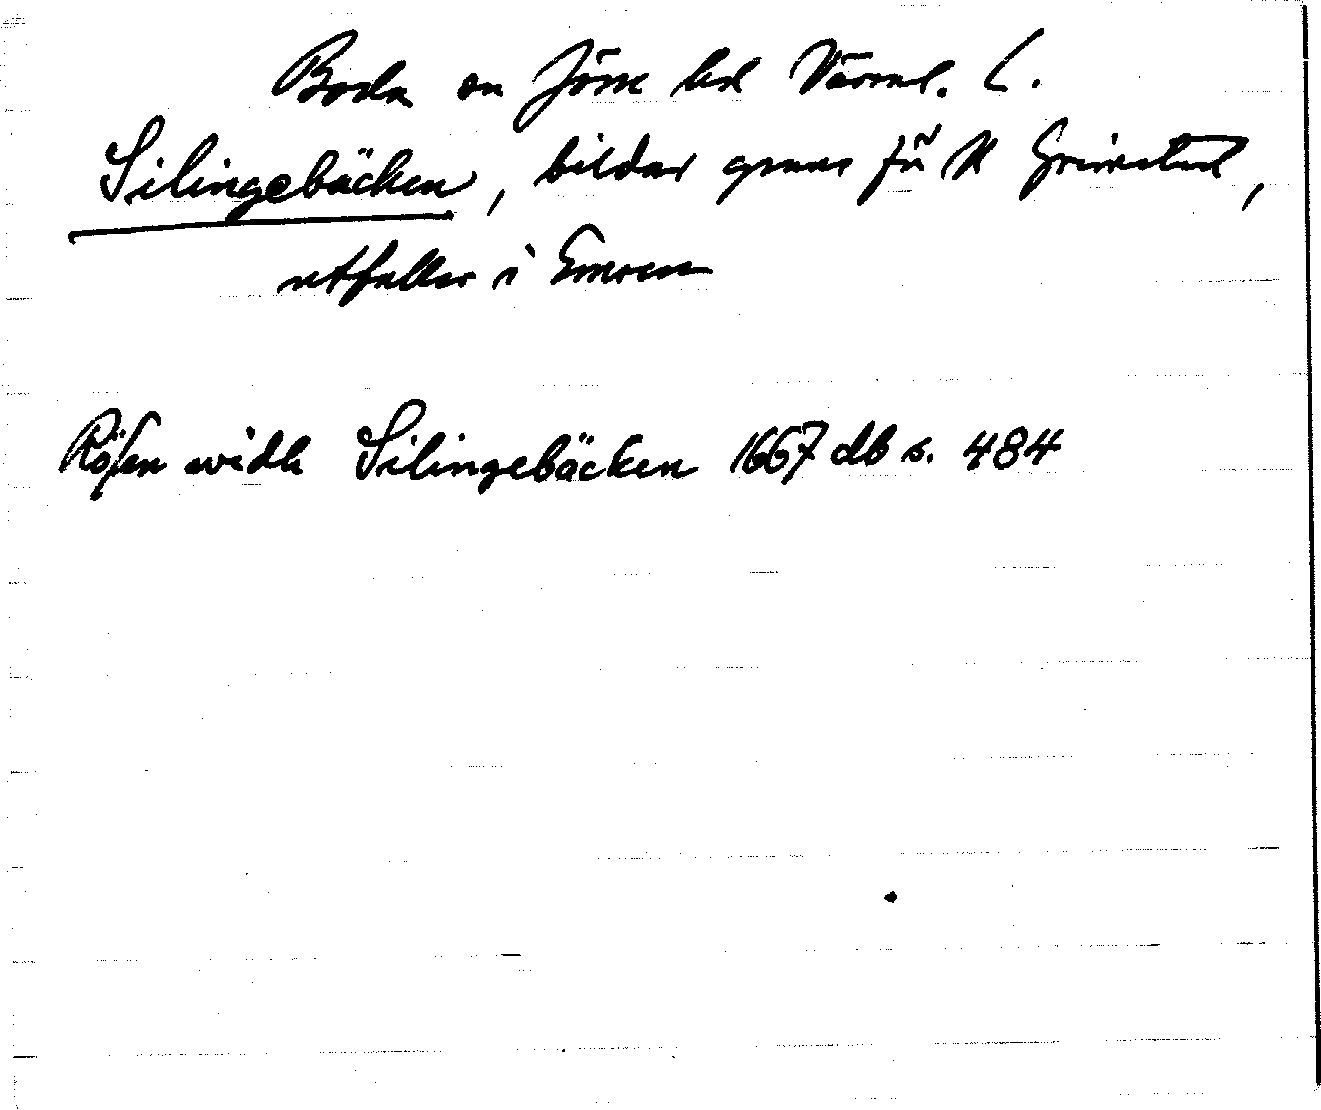 Boda sn Jösse hd Värml. L.
Silingebäcken, bildar gräns för N Grimstad,
utfaller i Emsen
Rösen widh Silingebäcken 1667 db s. 484